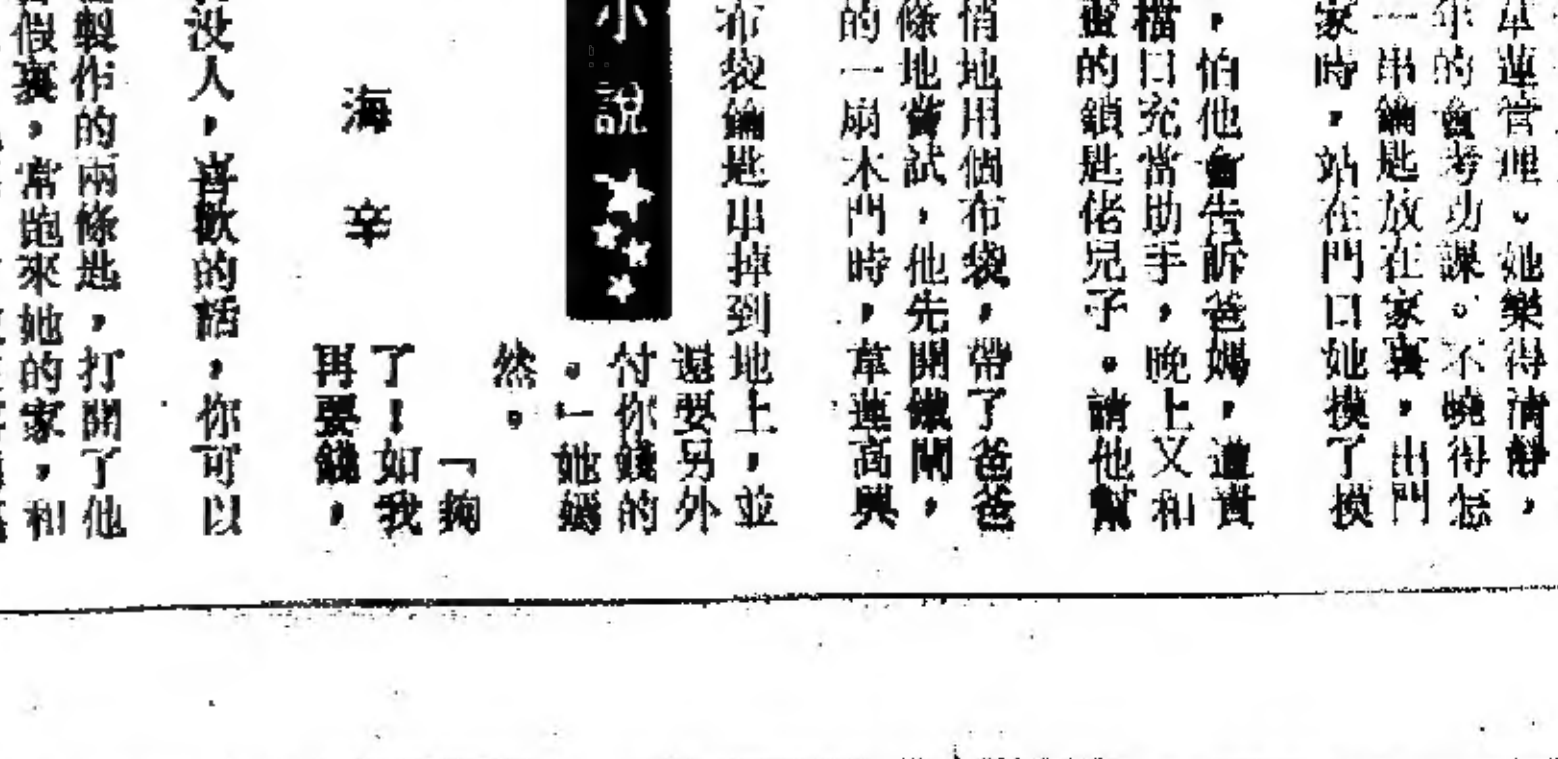 蓮管理。她樂得清靜,
年的會考功課。不曉得怎
一串鑰匙放在家裏,出門
家時,站在門口她摸了摸
,怕他會告訴爸媽,遭責
檔口充當助手,晚上又和
蜜的鎖匙佬兒子。請他幫
悄地用個布袋,帶了爸爸
條地嘗試,他先開鐵閘,
的一扇木門時,葦蓮高興
布袋鑰匙串掉到地上,並
還要另外
付你錢的
。」她嫣
然。
小說
海辛
「夠
了!如我
再要錢,
沒人,喜歡的話,你可以
製作的兩條匙,打開了他
假裏,常跑來她的家,和